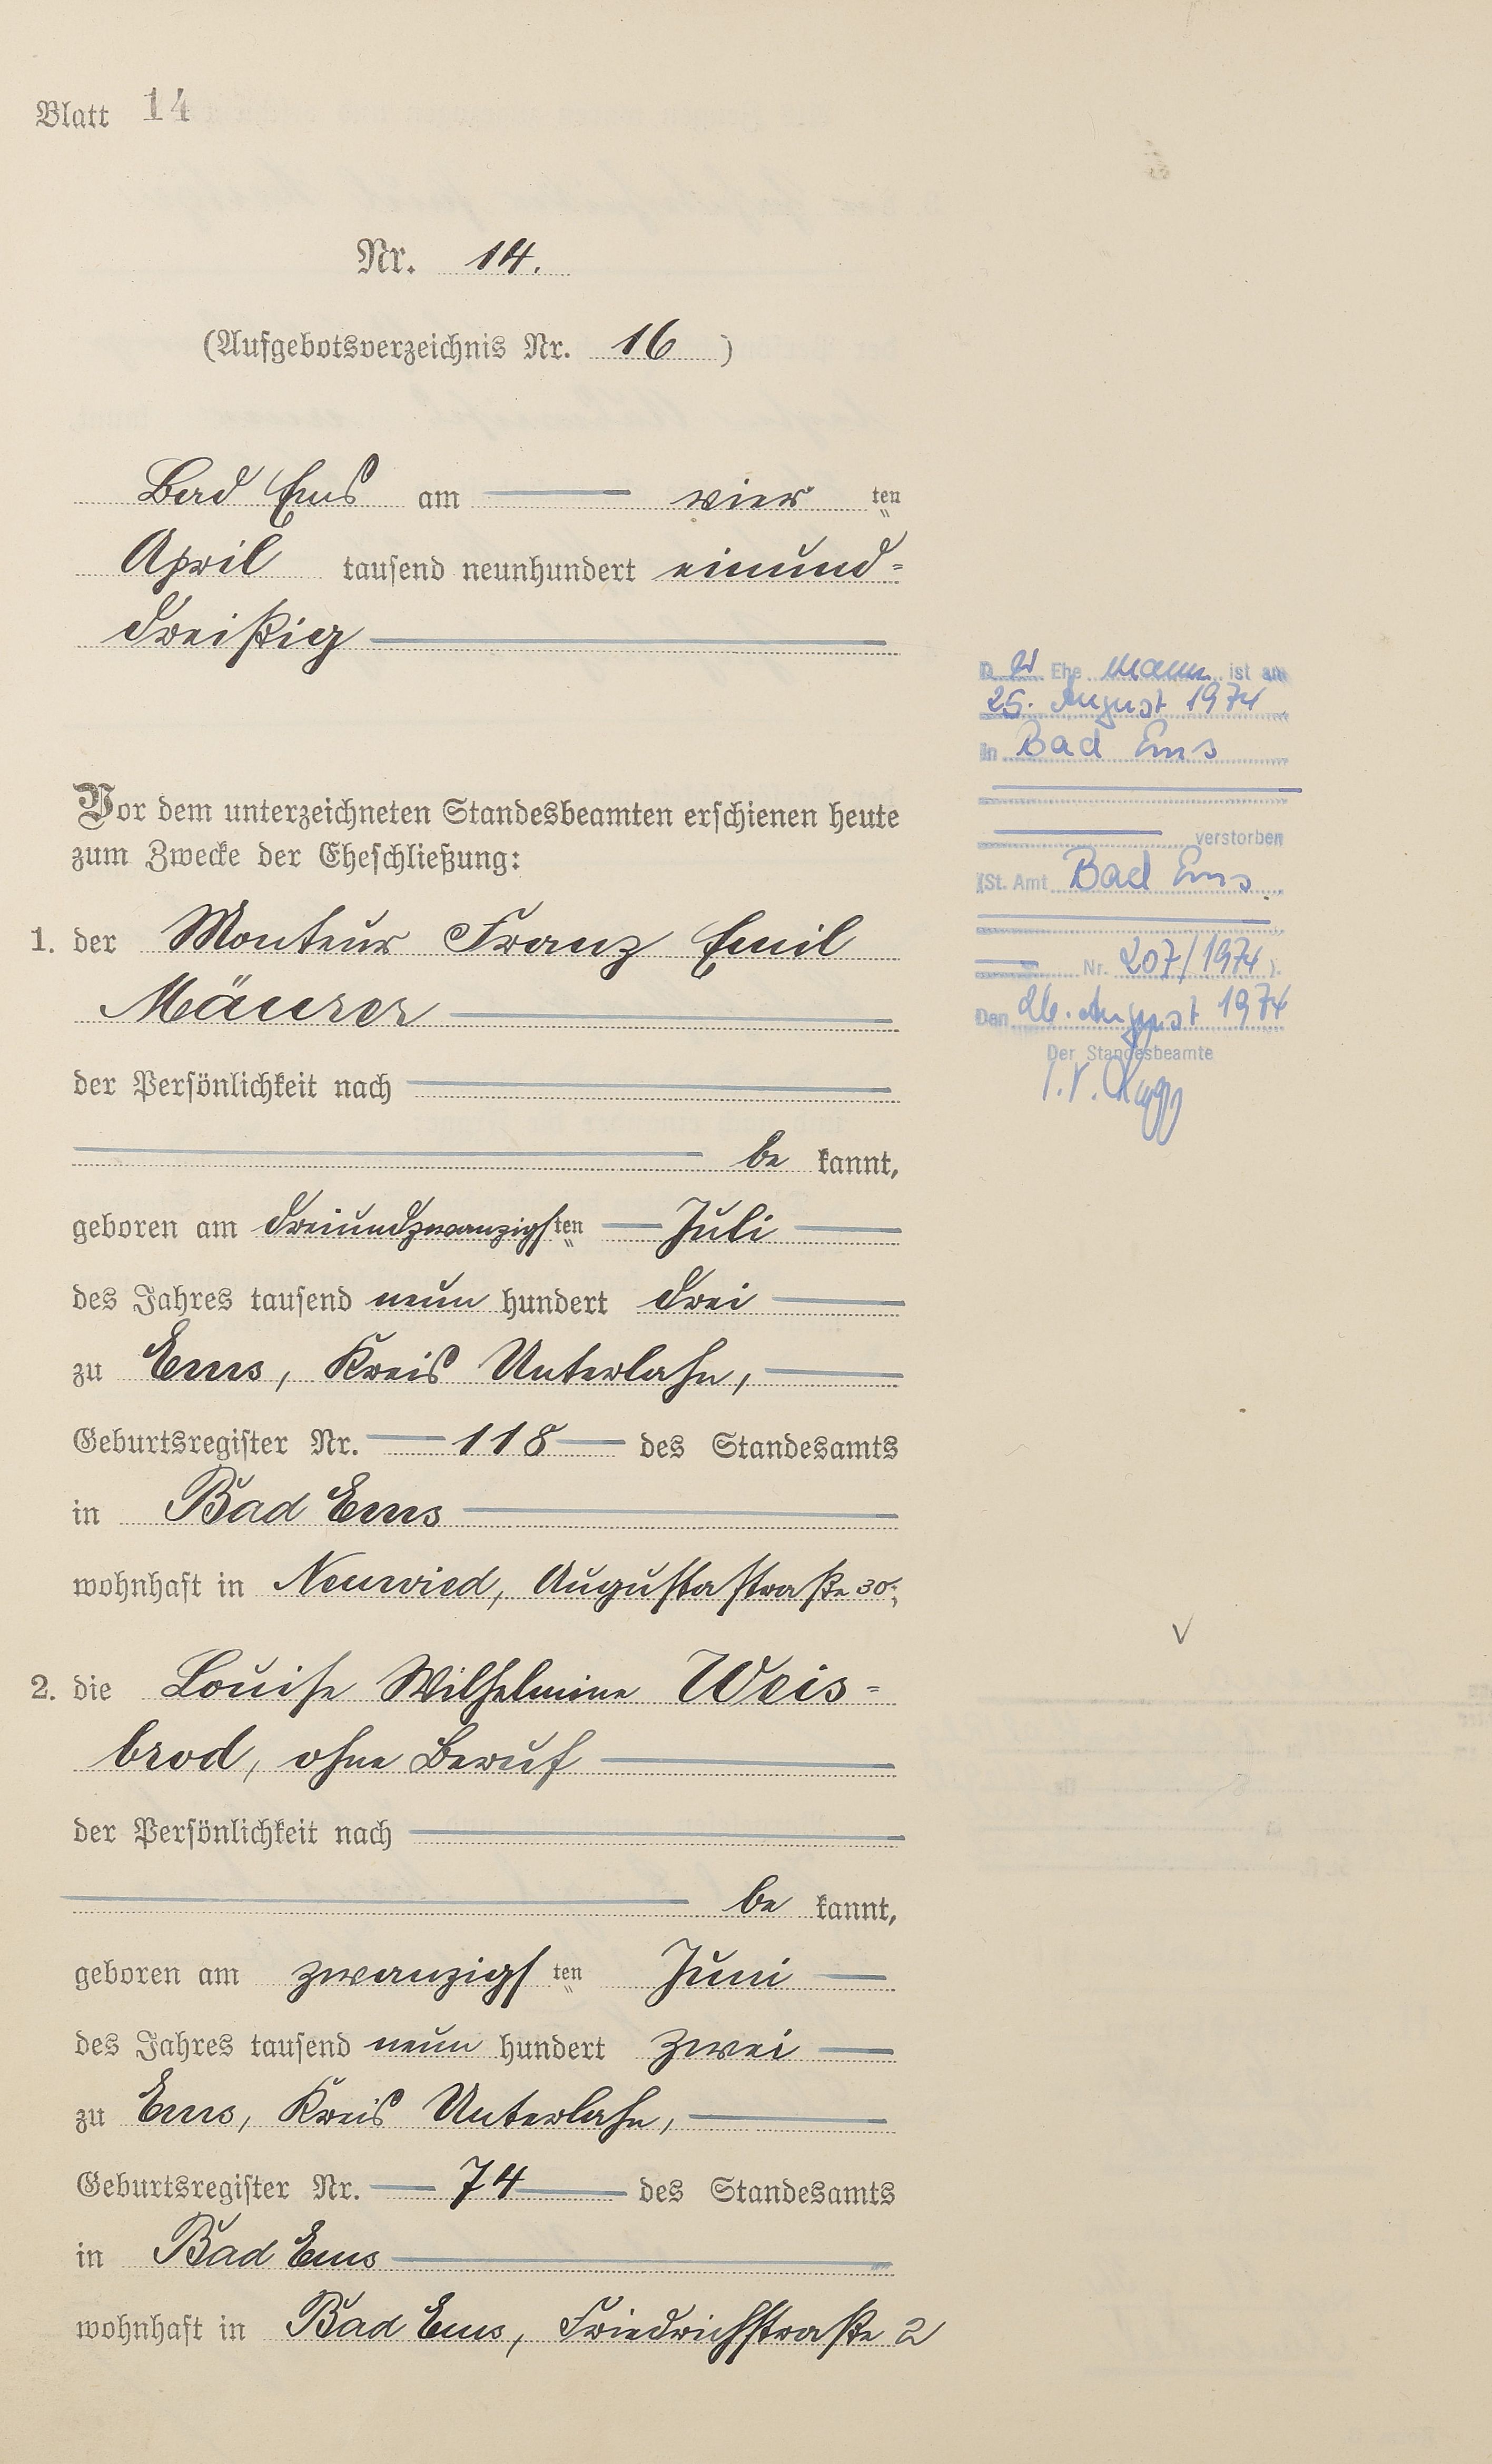 Blatt 14
Nr. 14.
(Aufgebotsverzeichnis Nr. 16)
Bad Ems am vier ten
April tausend neunhundert einund-
dreißig
Vor dem unterzeichneten Standesbeamten erschienen heute
zum Zwecke der Eheschließung:
1. der Monteur Franz Emil
Mäurer
der Persönlichkeit nach
be kannt,
geboren am dreiundzwanzigsten Juli
des Jahres tausend neun hundert drei
zu Ems, Kreis Unterlahn,
Geburtsregister Nr. 118 des Standesamts
in Bad Ems
wohnhaft in Neuwied, Augustastraße 30;
2. die Louise Wilhelmine Weis-
brod, ohne Beruf
der Persönlichkeit nach
be kannt,
geboren am zwanzigsten Juni
des Jahres tausend neun hundert zwei
zu Ems, Kreis Unterlahn,
Geburtsregister Nr. 74 des Standesamts
in Bad Ems
wohnhaft in Bad Ems, Friedrichstraße 2
D er Ehe mann ist am
25. August 1974
in Bad Ems
verstorben
(St. Amt Bad Ems
Nr. 207/1974).
Den 26. August 1974
Der Standesbeamte